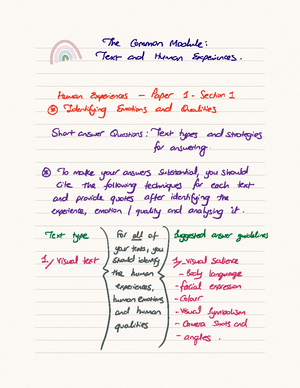 The Common Module:
Text and Human Experiences.
Human Experiences – Paper 1 - Section 1
* Identifying Emotions and Qualities
Short answer Questions: Text types and strategies
for answering.
* To make your answers substantial, you should
cite the following techniques for each text
and provide quotes after identifying the
experience, emotion / quality and analysing it.
Text type
1, Visual text
For all of
your texts, you
should identify
the human
experiences,
human emotions
and human
qualities
Suggested answer guidelines
1, - Visual salience
- Body language
- facial expression
- Colour
- Visual Symbolism
- Camera Shots and
- angles.